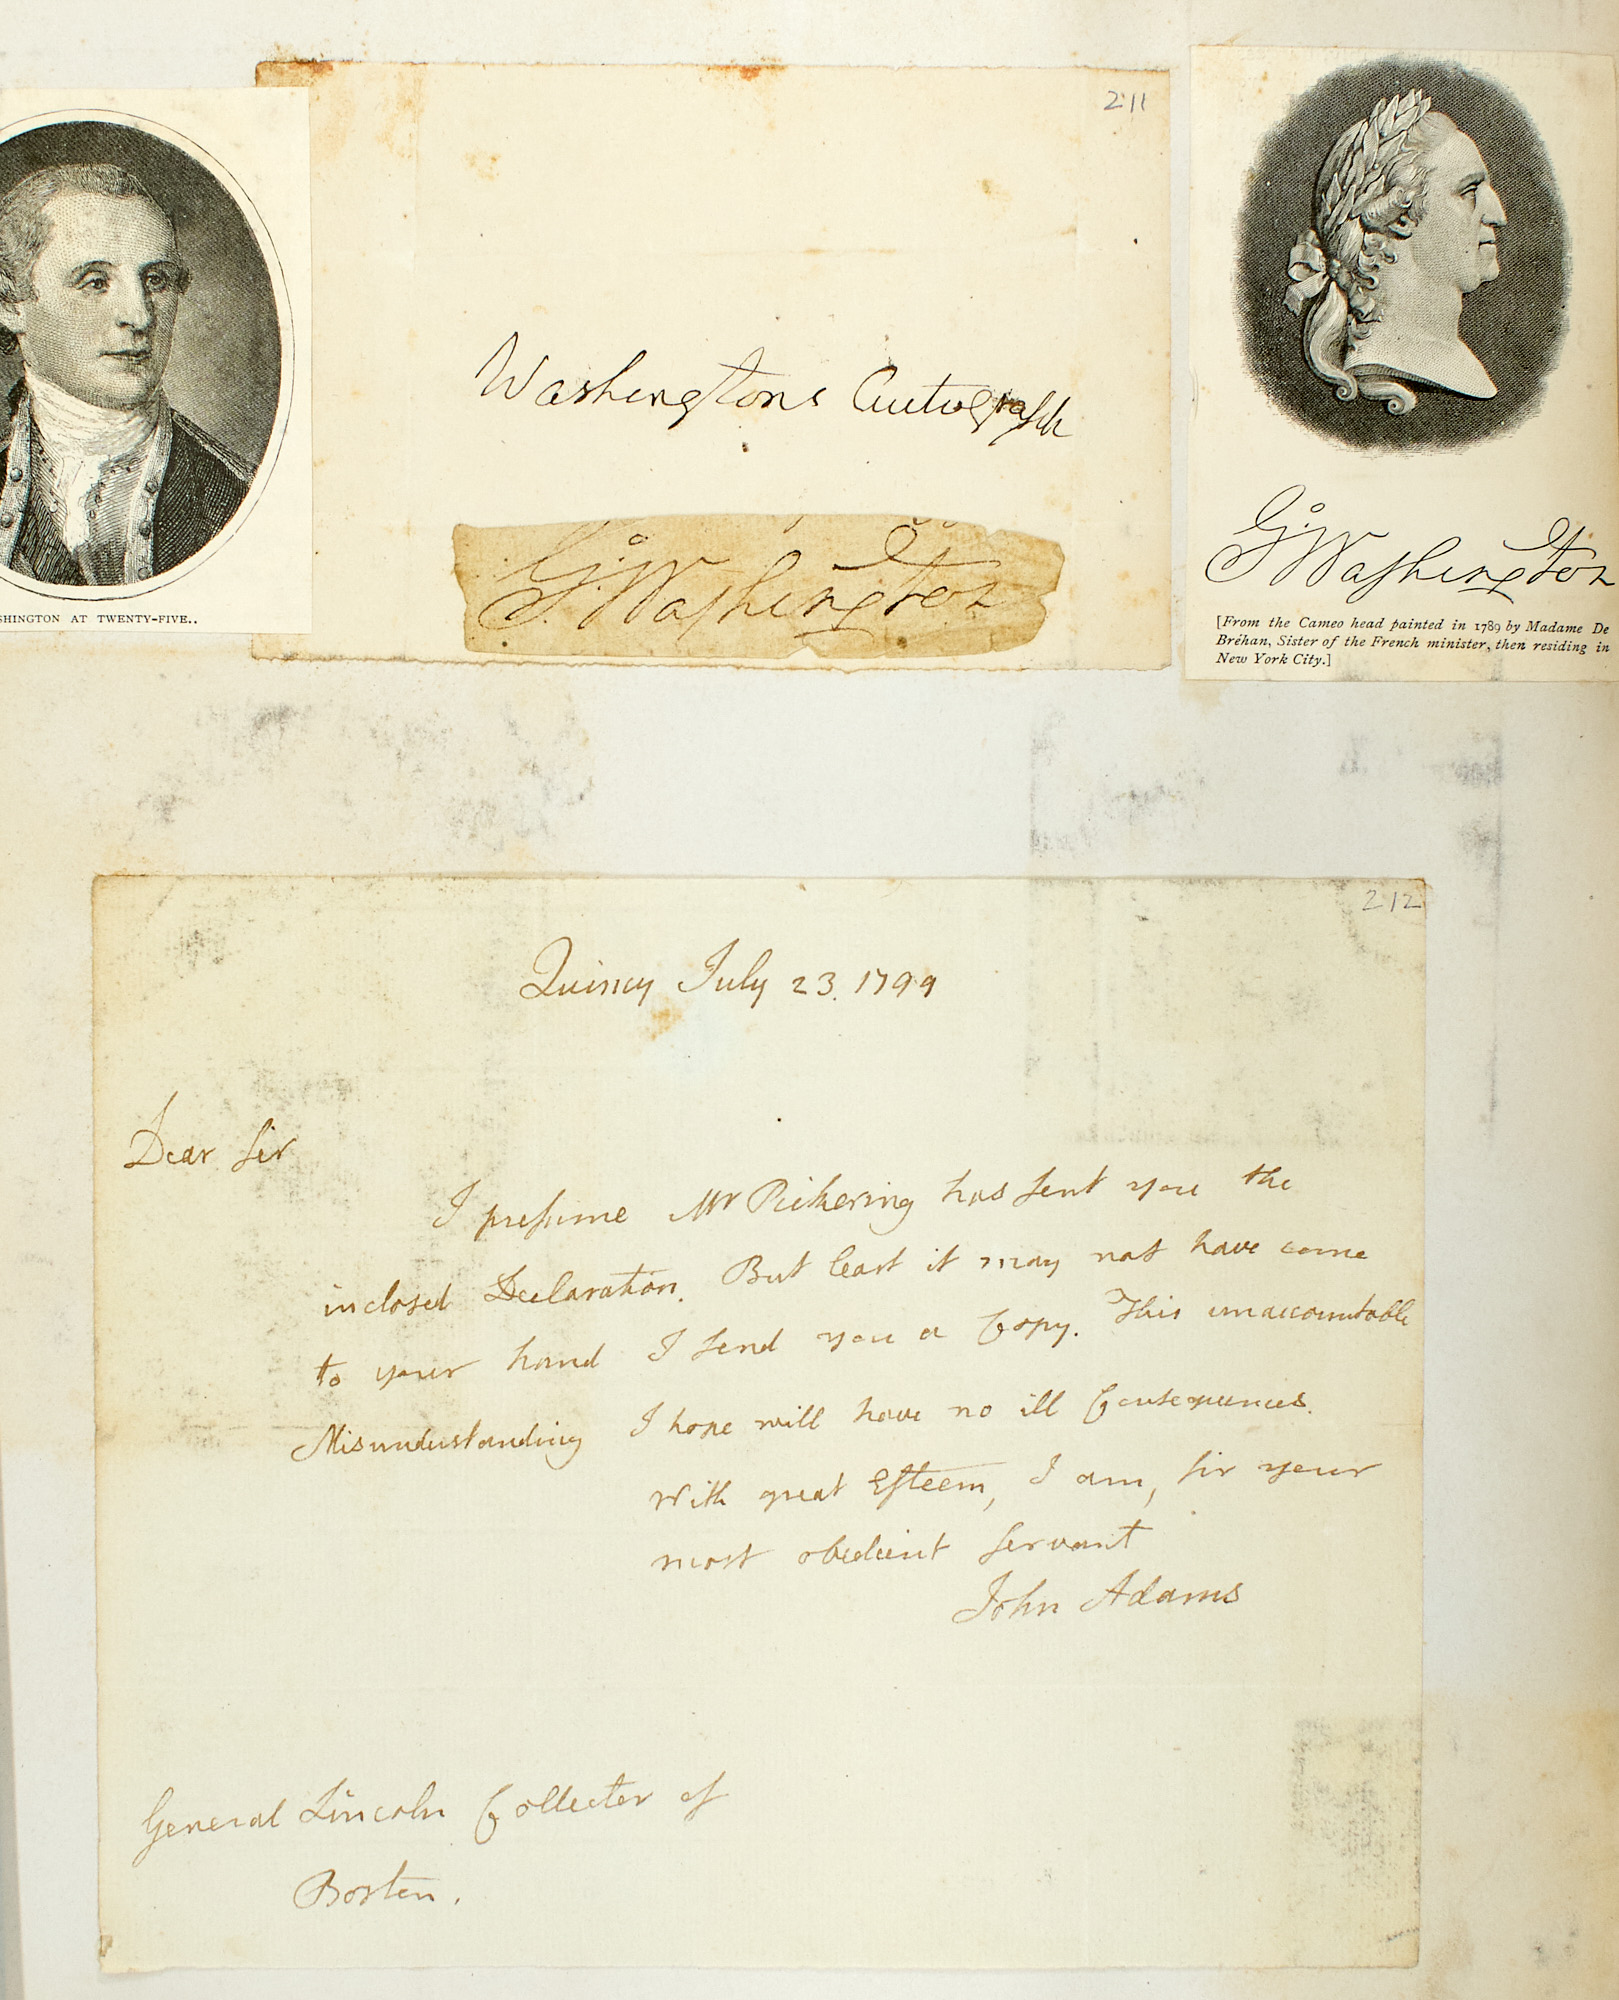 211
Washingtons Autograph
Go: Washington
SHINGTON AT TWENTY-FIVE..
Go: Washington
[From the Cameo head painted in 1789 by Madame De
Bréhan, Sister of the French minister, then residing in
New York City.]
212
Quincy July 23. 1799
Dear Sir
I presume Mr Pickering has sent you the
inclosed Declaration. But least it may not have come
to your hand I send you a Copy. This unaccountable
Misunderstanding I hope will have no ill Consequences.
With great Esteem, I am, Sir your
most obedient servant
John Adams
General Lincoln Collecter of
Boston.